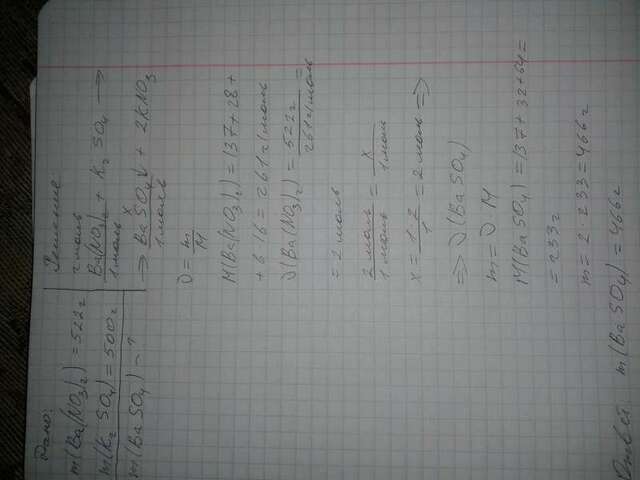 Дано:
m(Ba(NO3)2) = 522г
m(K2SO4) = 500г
m(BaSO4) - ?
Решение
2 моль x
Ba(NO3)2 + K2SO4 →
1 моль
→ BaSO4↓ + 2KNO3
1 моль
ν = m/M
M(Ba(NO3)2) = 137 + 28 +
+ 6·16 = 261 г/моль
ν(Ba(NO3)2) = 522г / 261 г/моль =
= 2 моль
2 моль / 1 моль = x / 1 моль
x = 1·2 / 1 = 2 моль ⇒
⇒ ν(BaSO4)
m = ν·M
M(BaSO4) = 137 + 32 + 64 =
= 233г
m = 2·233 = 466г
Ответ: m(BaSO4) = 466г